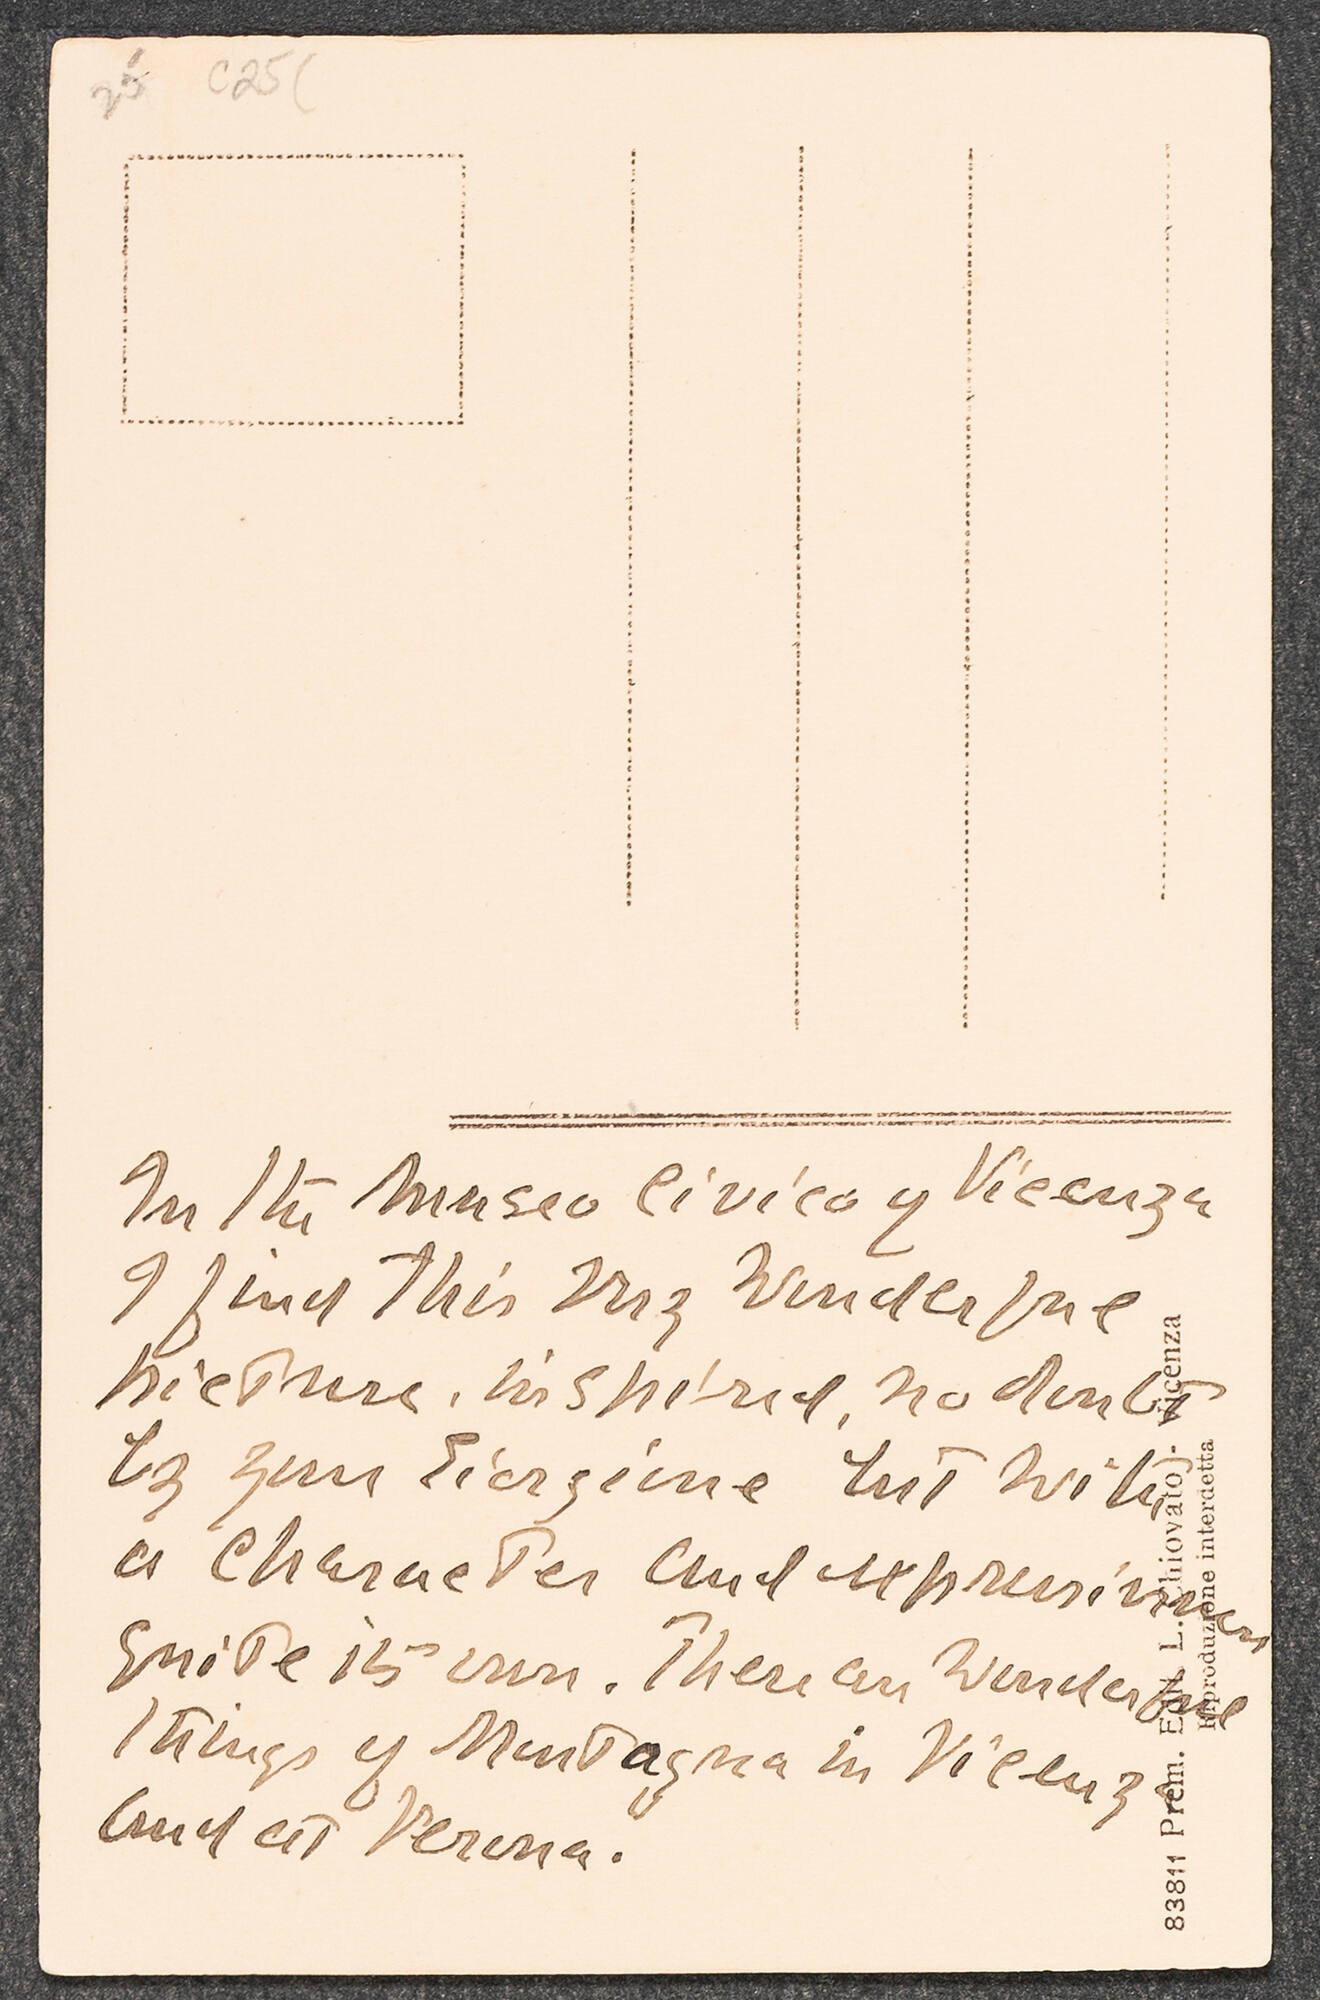 25 C25
In the Museo Civico of Vicenza
I find this very wonderful
picture, inspired, no doubt
by your Giorgione but with
a character and expressiveness
quite its own. There are wonderful
things of Montagna in Vicenza
and at Verona.
83811 Prem. Edit. L. Chiovato - Vicenza
Riproduzione interdetta